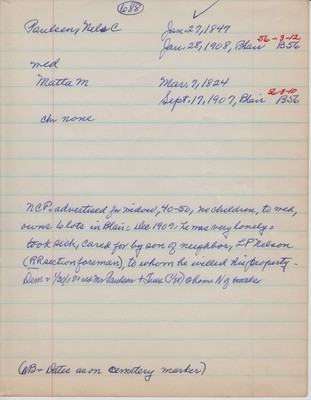 688
Paulsen, Nels C Jan. 27, 1847
Jan. 28, 1908, Blair B56
56-3-12
wed
Matta M Mar. 7, 1824
Sept. 17, 1907, Blair B56
ch: none
NCP advertised for widow, 40-50, no children, to wed,
owns 6 lots in Blair - Dec 1907 - he was very lonely -
took sick, cared for by son of neighbor, LP Nelson
(RR section foreman), to whom he willed his property -
Dem - 1/30/08 Mr Paulsen + Jens @ home N of
(NB - Dates as on cemetery marker)